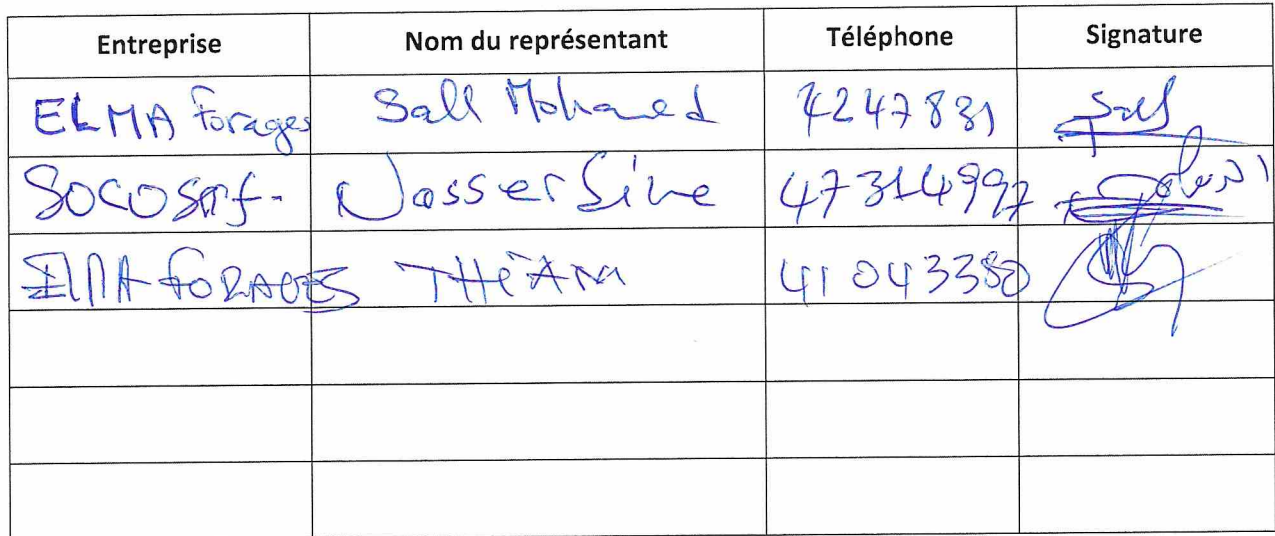 Entreprise Nom du représentant Téléphone Signature
ELMA Forages Sall Mohamed 4247831 Sall
SOCOSAF- Nasser Sine 47314997
ELMA FORAGES 41043380